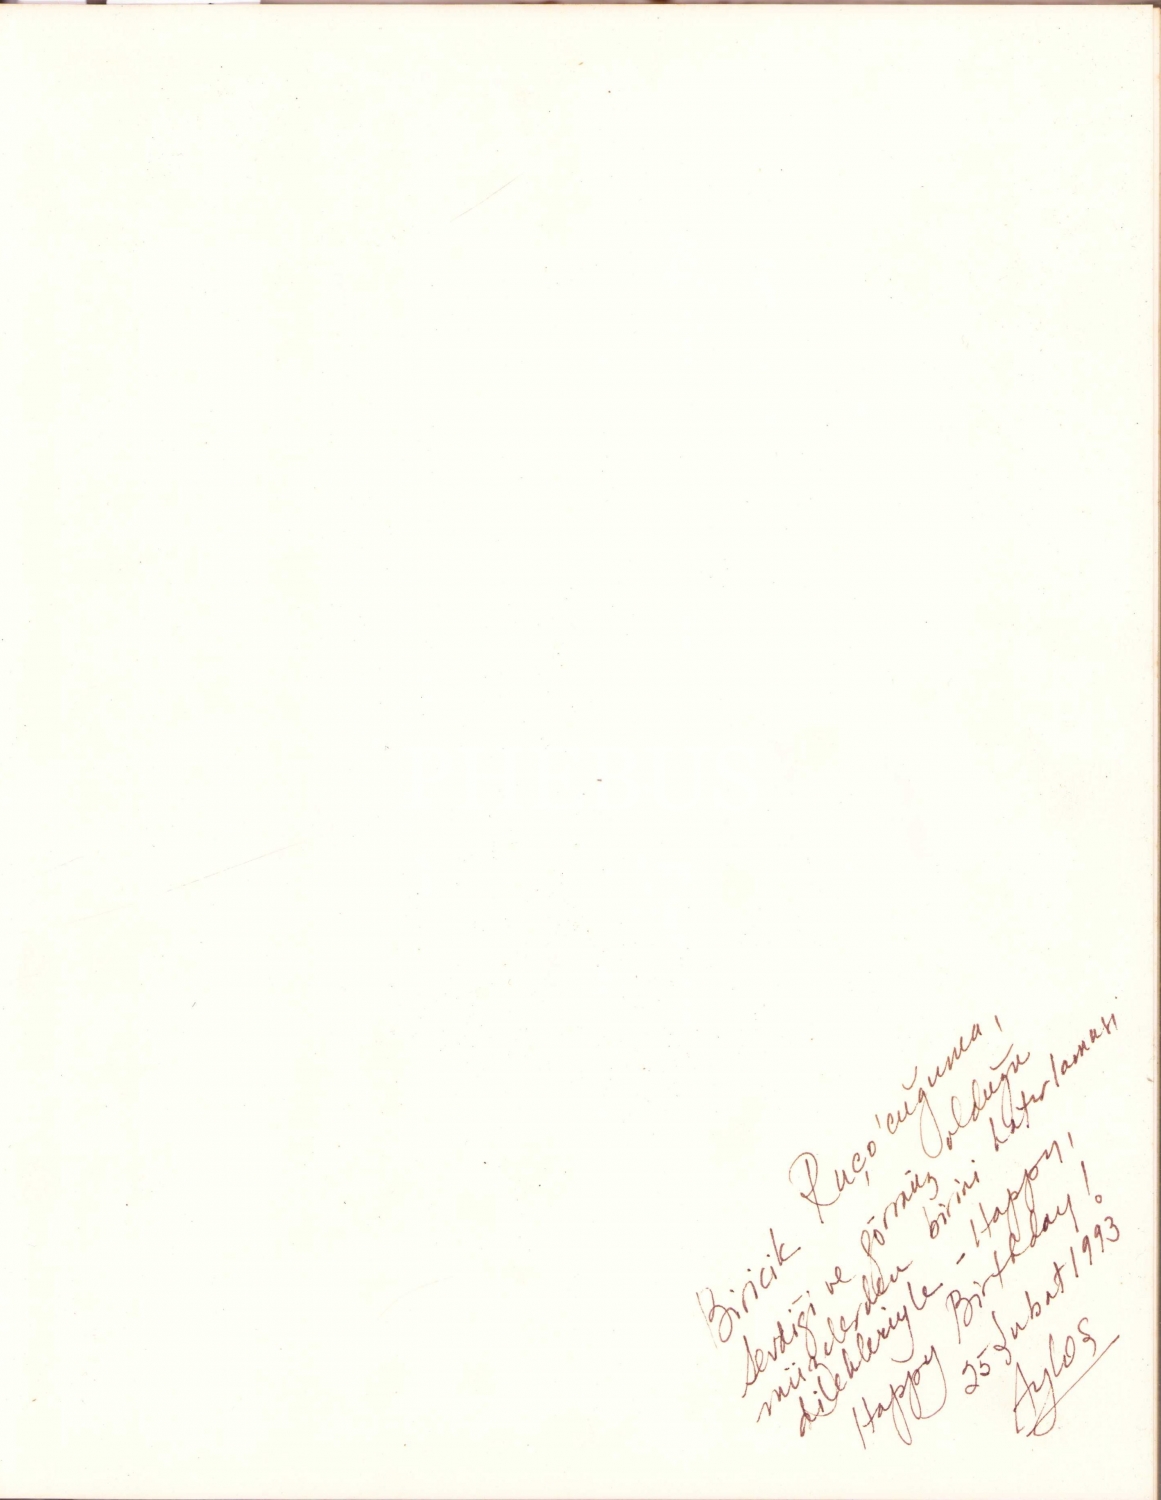 Biricik Ruço'cuğuma,
sevdiği ve görmüş olduğu
müzelerden birini hatırlaması
dilekleriyle - Happy,
Happy Birthday!
25 Şubat 1993
Ayloş